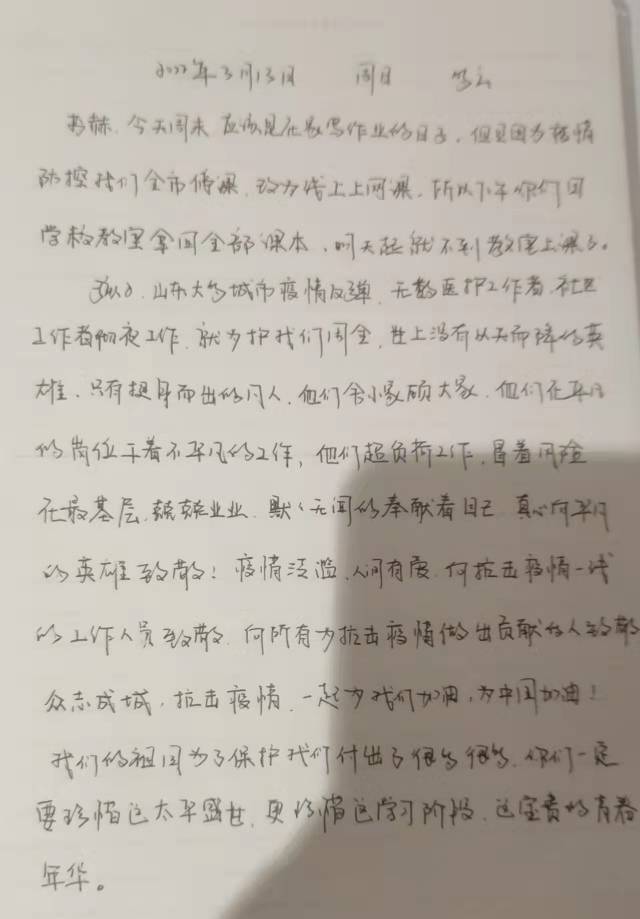 2022年3月13日 周日 多云
今天周末 应该是在家写作业的日子，但是因为疫情
防控我们全市停课，改为线上上网课，所以下午你们回
学校教室拿回全部课本，明天起就不到教室上课了。
山东大多城市疫情反弹，无数医护工作者，社区
工作者彻夜工作，就为护我们周全，世上没有从天而降的英
雄，只有挺身而出的凡人，他们舍小家顾大家，他们在平凡
的岗位干着不平凡的工作，他们超负荷工作，冒着风险
在最基层，兢兢业业，默默无闻的奉献着自己，真心向平凡
的英雄致敬！疫情泛滥，人间有爱，向抗击疫情一线
的工作人员致敬，向所有为抗击疫情做出贡献的人致敬
众志成城，抗击疫情，一起为我们加油，为中国加油！
我们的祖国为了保护我们付出了很多很多，你们一定
要珍惜这太平盛世，更珍惜这学习阶段，这宝贵的青春
年华。